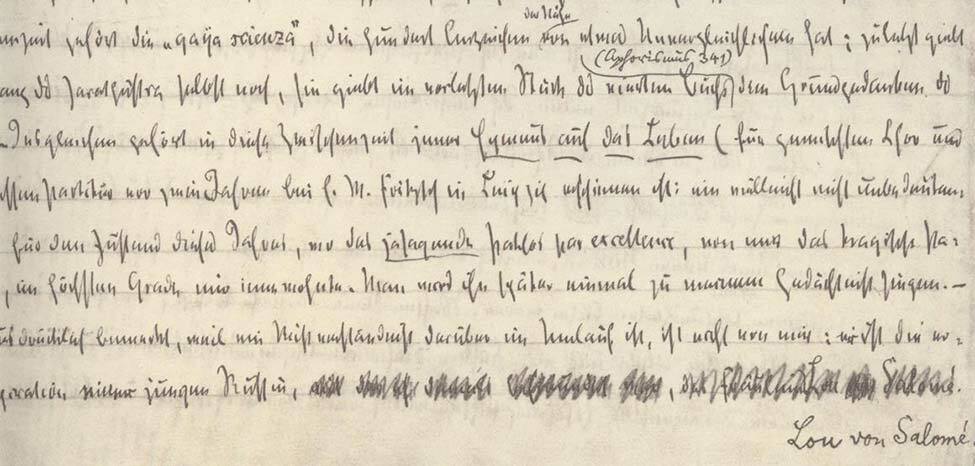 der Nähe
enzeit gehört die „gaya scienza“, die hundert Anzeichen von etwas Unvergleichlichem hat; zuletzt giebt
(Aphorismus 341)
ang des Zarathustra selbst noch, sie giebt im vorletzten Stück des vierten Buchs den Grundgedanken des
– Insgleichen gehört in diese Zwischenzeit jener Hymnus auf das Leben (für gemischten Chor und
essen Partitur vor zwei Jahren bei E. W. Fritzsch in Leipzig erschienen ist: ein vielleicht nicht unbedeuten-
für den Zustand dieses Jahres, wo das jasagende Pathos par excellence, von mir das tragische Pa-
, im höchsten Grade mir innewohnte. Man wird ihn später einmal zu meinem Gedächtniß singen. —
usdrücklich bemerkt, weil ein Mißverständniß darüber im Umlauf ist, ist nicht von mir: er ist die er-
piration einer jungen Russin, Salomé.
Lou von Salomé.